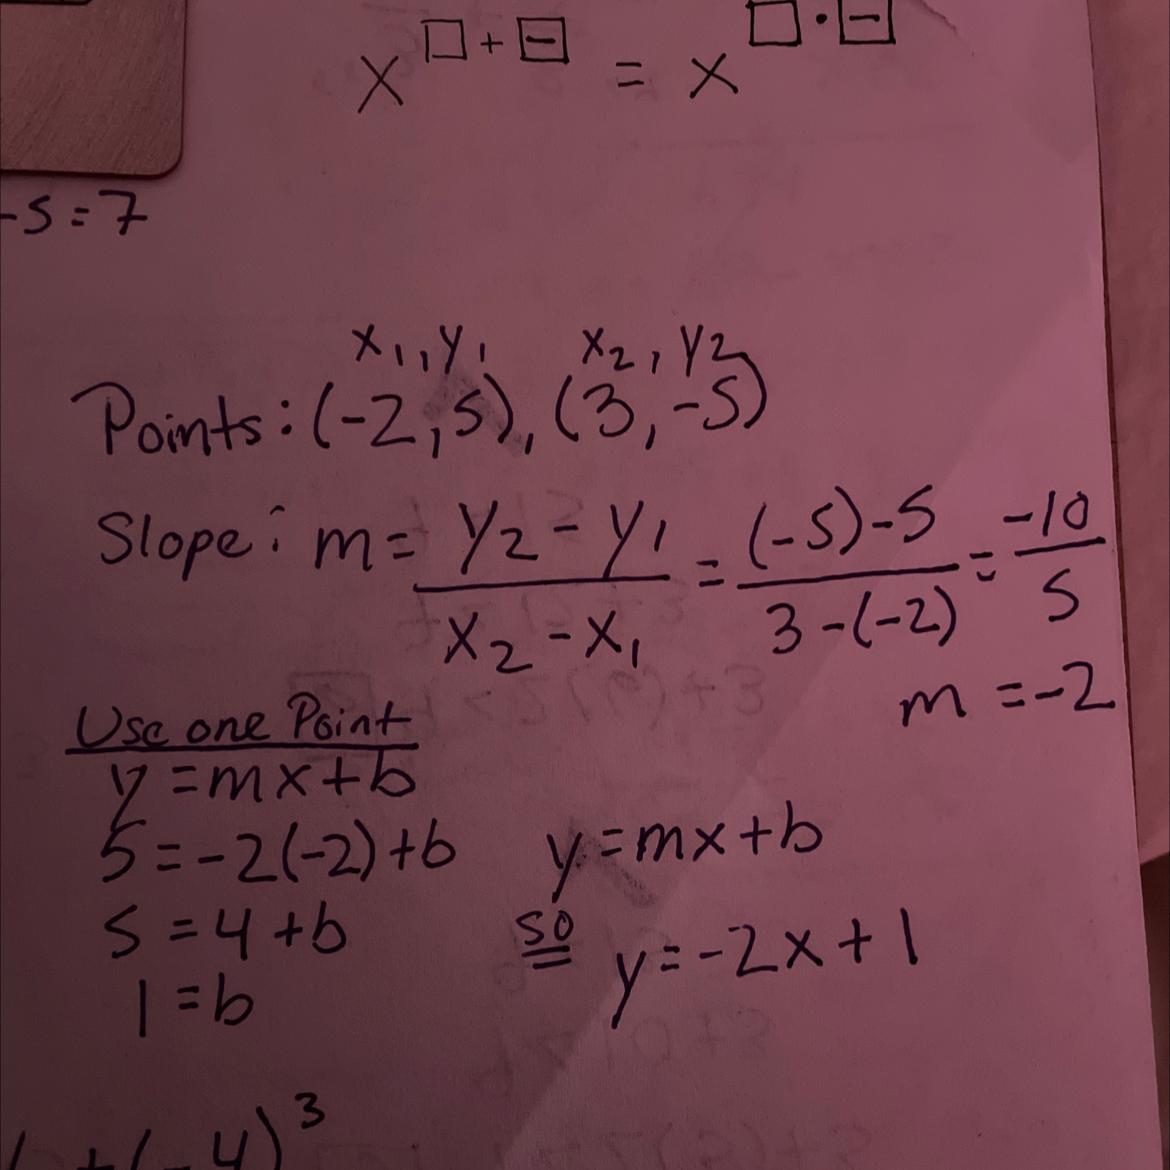 x^(□ + ⊟) = x^(□ · ⊟)
-5 = 7
x₁, y₁ x₂, y₂
Points: (-2, 5), (3, -5)
Slope: m = (y₂ - y₁)/(x₂ - x₁) = ((-5) - 5)/(3 - (-2)) = -10/5
m = -2
Use one Point
y = mx + b
5 = -2(-2) + b
5 = 4 + b
1 = b
y = mx + b
so y = -2x + 1
+ (-4)³